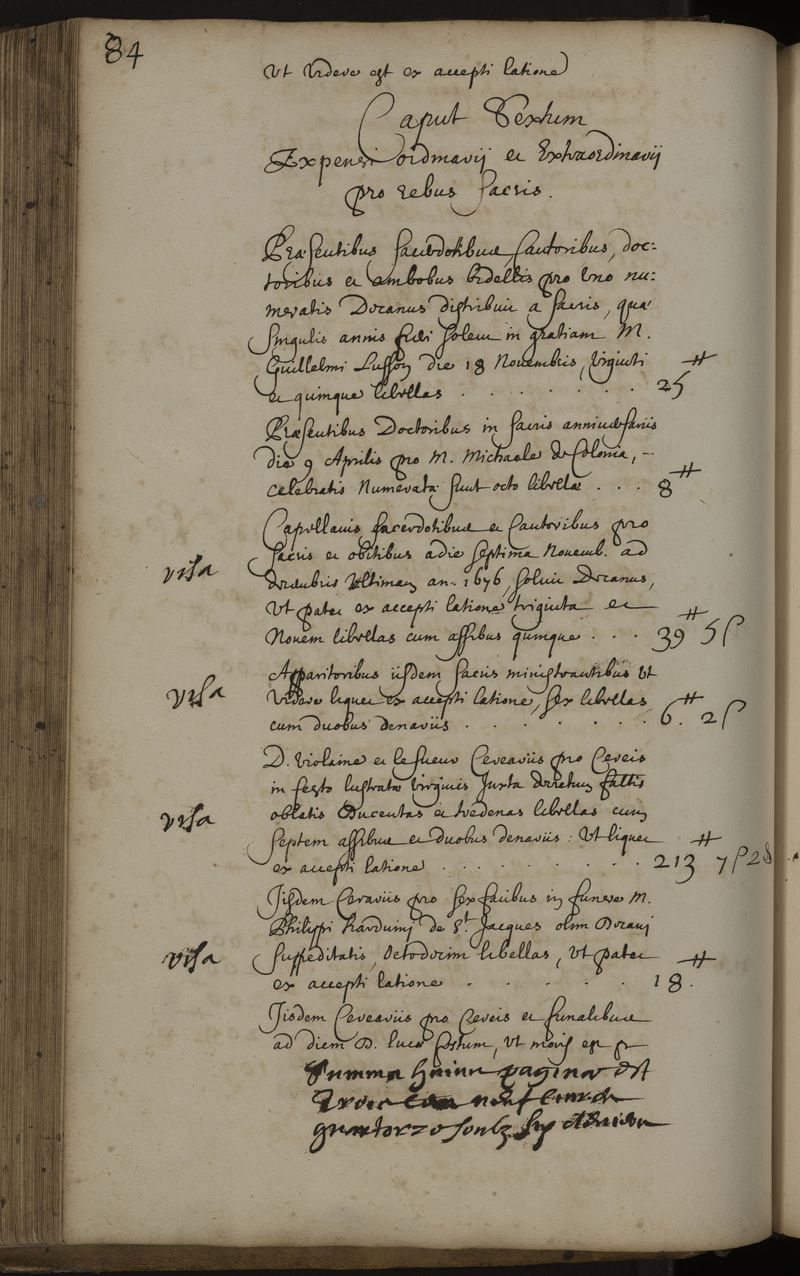 84
Ut videre est ex accepti latione
Caput Sextum
Expensi ordinarij et Extraordinarij
pro rebus sacris.
Præsentibus sacerdotibus, cantoribus, doc-
toribus et ambobus bidellis pro uno nu-
meratis Decanus distribuit a sacris, quæ
singulis annis fieri solent in gratiam M.
Guillelmi Lusson die 18 Novembris, viginti
et quinque libellas . . . . . . . 25 ₶
Præsentibus Doctoribus in sacris anniversariis
die 9 Aprilis pro M. Michaele de Colonia, -
celebratis Numeratæ sunt octo libellæ . . . 8 ₶
Capellanis, sacerdotibus et Cantoribus pro
sacris et obitibus a die septima Novemb. ad
visa
decembris Ultimam an. 1676, solvit Decanus,
Ut patet ex accepti latione triginta et
Novem libellas cum assibus quinque . . . 39 ₶ 5 ſ
Apparitoribus iisdem sacris ministrantibus Ut
visa
Videre liquet ex accepti latione, sex libellas
cum duobus denariis . . . . . . . 6 ₶. 2 ſ
D. Violaine et le sueur Cereariis pro Cereis
in festo lustratæ Virginis Juxta decretum facultis
visa
oblatis Ducentas et tredenas libellas cum
septem assibus et duobus denariis : Ut liquet
ex accepti latione . . . . . . . . . 213 ₶ 7 ſ 2 d
Iisdem Cerariis pro sex facibus in funere M.
Philippi harduini de St. Jacques olim Decani
visa
suppeditatis, octodecim libellas, Ut patet
ex accepti latione . . . . . . 18 ₶.
Iisdem Cereariis pro Cereis et funalibus
ad diem D. Lucæ festum, Ut moris est
Summa huius paginæ est
Trois neuf livres
quatorze soulz six deniers